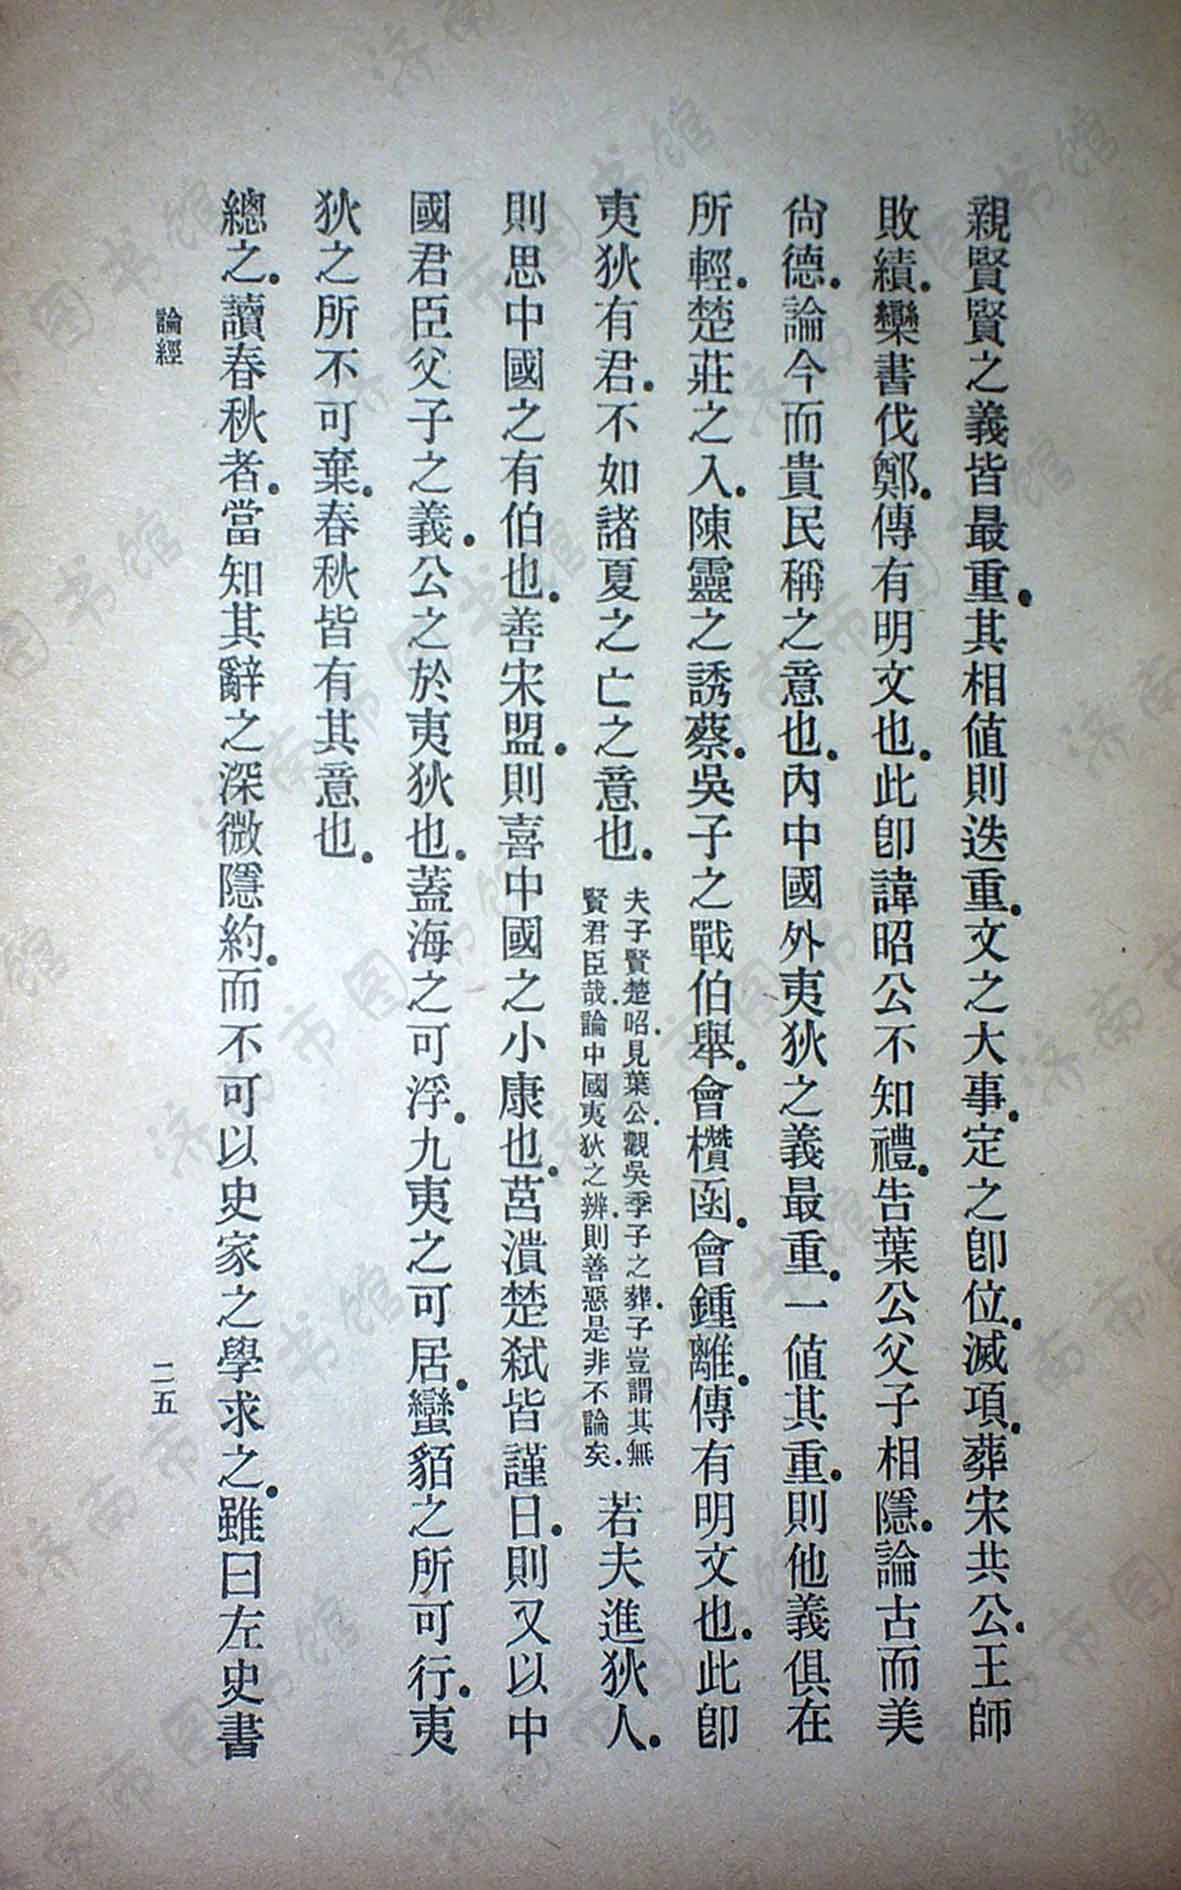 親賢賢之義皆最重.其相値則迭重.文之大事.定之卽位.滅項.葬宋共公.王師
敗績.欒書伐鄭.傳有明文也.此卽諱昭公不知禮.吿葉公父子相隱.論古而美
尙德.論今而貴民稱之意也.內中國外夷狄之義最重.一値其重.則他義俱在
所輕.楚莊之入.陳靈之誘蔡.吳子之戰伯舉.會欑函.會鍾離.傳有明文也.此卽
夷狄有君.不如諸夏之亡之意也.
夫子賢楚昭.見葉公.觀吳季子之葬.子豈謂其無
賢君臣哉.論中國夷狄之辨.則善惡是非不論矣.
若夫進狄人.
則思中國之有伯也.善宋盟.則喜中國之小康也.莒潰楚弒皆謹日.則又以中
國君臣父子之義.公之於夷狄也.蓋海之可浮.九夷之可居.蠻貊之所可行.夷
狄之所不可棄.春秋皆有其意也.
總之.讀春秋者.當知其辭之深微隱約.而不可以史家之學求之.雖曰左史書
論經
二五
济南市图书馆